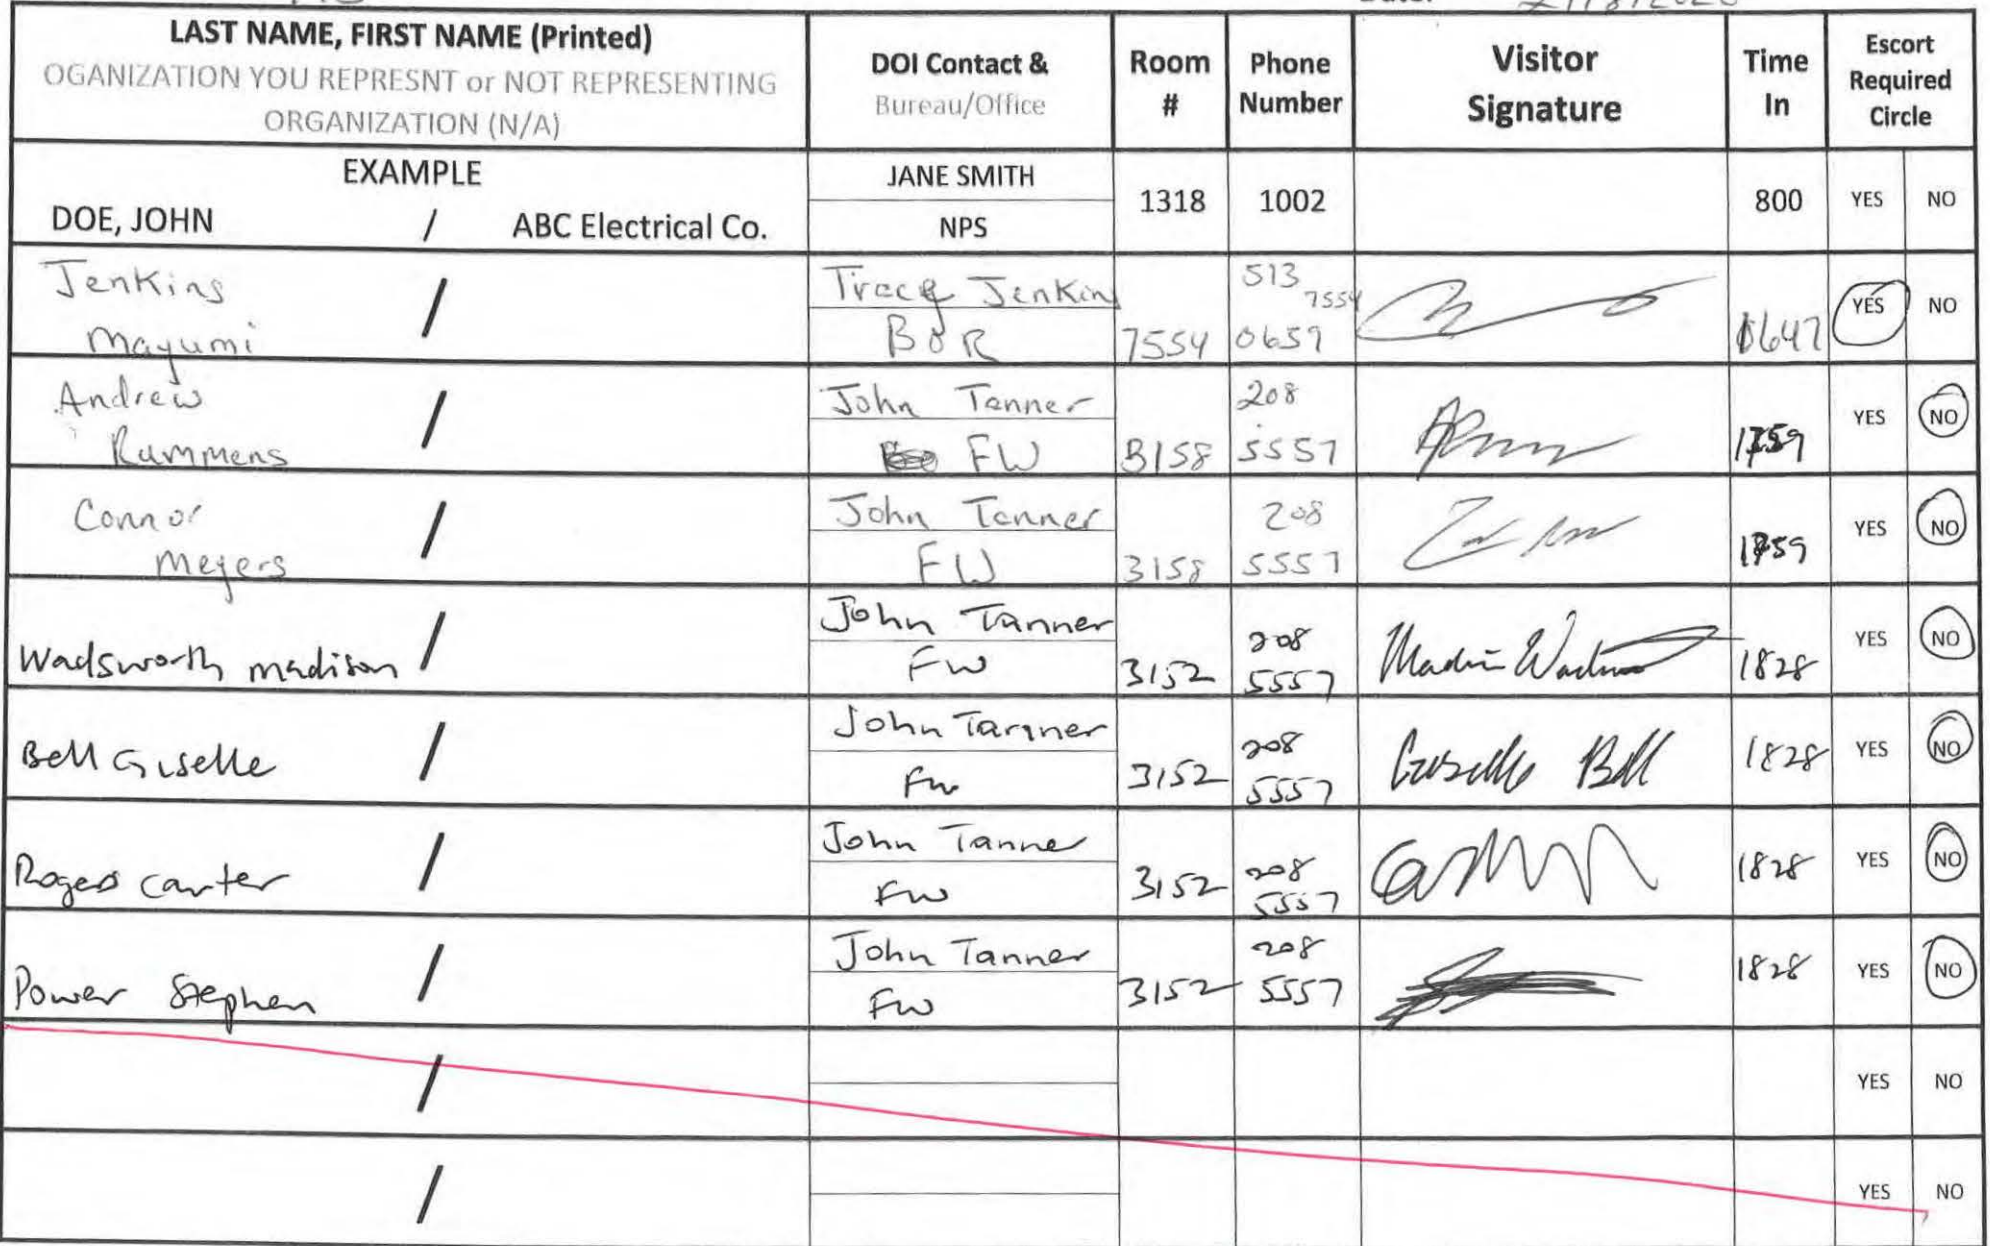 LAST NAME, FIRST NAME (Printed)
OGANIZATION YOU REPRESNT or NOT REPRESENTING
ORGANIZATION (N/A)
DOI Contact &
Bureau/Office
Room
#
Phone
Number
Visitor
Signature
Time
In
Escort
Required
Circle
EXAMPLE
DOE, JOHN / ABC Electrical Co.
JANE SMITH
NPS
1318
1002
800
YES NO
Jenkins
Mayumi
/
Tracy Jenkins
BOR
7554
513
7554
0659
YES NO
Andrew
Rummens
/
John Tanner
FW
3158
208
5557
1759
YES NO
Connor
Meyers
/
John Tanner
FW
3158
208
5557
1759
YES NO
Wadsworth madison /
John Tanner
FW
3152
208
5557
1828
YES NO
Bell Giselle /
John Tanner
FW
3152
208
5557
Giselle Bell
1828
YES NO
Rogers carter /
John Tanner
FW
3152
208
5557
1828
YES NO
Power Stephen /
John Tanner
FW
3152
208
5557
1828
YES NO
/
YES NO
/
YES NO